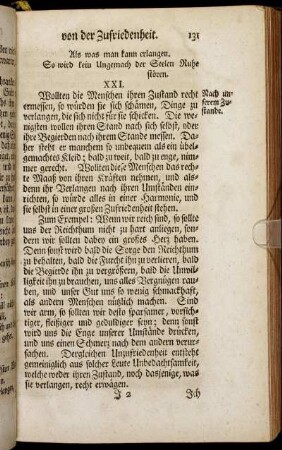 von der Zufriedenheit. 131
Als was man kann erlangen.
So wird kein Ungemach der Seelen Ruhe
stören.
XXI.
Wollten die Menschen ihren Zustand recht
ermessen, so würden sie sich schämen, Dinge zu
verlangen, die sich nicht für sie schicken. Die we-
nigsten wollen ihren Stand nach sich selbst, oder
ihre Begierden nach ihrem Stande messen. Da-
her steht er manchem so unbequem als ein übel-
gemachtes Kleid; bald zu weit, bald zu enge, nim-
mer gerecht. Wollten diese Menschen das rech-
te Maaß von ihren Kräften nehmen, und als-
denn ihr Verlangen nach ihren Umständen ein-
richten, so würde alles in einer Harmonie, und
sie selbst in einer großen Zufriedenheit stehen.
Nach un-
serem Zu-
stande.
Zum Exempel: Wenn wir reich sind, so sollte
uns der Reichthum nicht zu hart anliegen, son-
dern wir sollten dabey ein großes Herz haben.
Denn sonst wird bald die Sorge den Reichthum
zu behalten, bald die Furcht ihn zu verlieren, bald
die Begierde ihn zu vergrößern, bald die Unwil-
ligkeit ihn zu brauchen, uns alles Vergnügen rau-
ben, und unser Gut uns so wenig schmackhaft,
als andern Menschen nützlich machen. Sind
wir arm, so sollten wir desto sparsamer, vorsich-
tiger, fleißiger und geduldiger seyn; denn sonst
wird uns die Enge unserer Umstände drücken,
und uns einen Schmerz nach dem andern verur-
sachen. Dergleichen Unzufriedenheit entsteht
gemeiniglich aus solcher Leute Unbedachtsamkeit,
welche weder ihren Zustand, noch dasjenige, was
sie verlangen, recht erwägen.
J 2 Ich